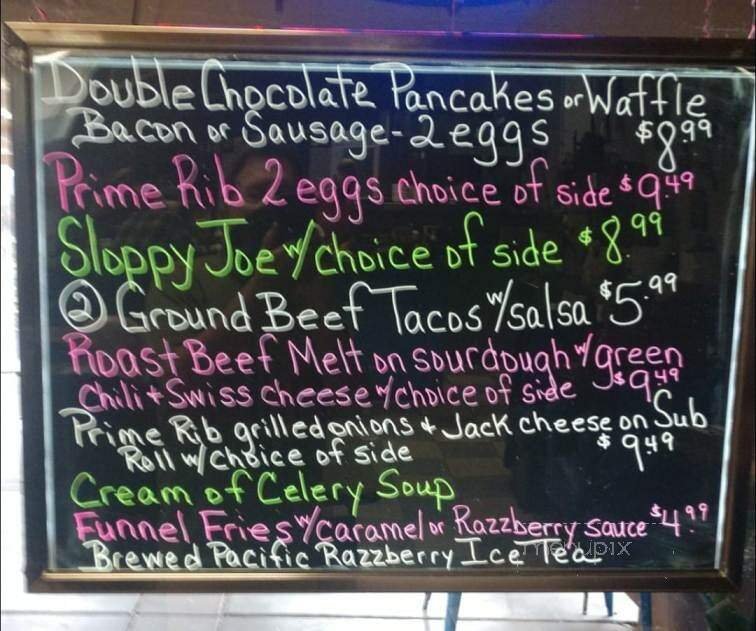 Double Chocolate Pancakes or Waffle
Bacon or Sausage - 2 eggs $8.99
Prime Rib 2 eggs choice of side $9.49
Sloppy Joe w/ choice of side $8.99
② Ground Beef Tacos w/ salsa $5.99
Roast Beef Melt on sourdough w/ green
Chili + Swiss cheese w/ choice of side $9.49
Prime Rib grilled onions + Jack cheese on Sub
Roll w/ choice of side $9.49
Cream of Celery Soup
Funnel Fries w/ caramel or Razzberry Sauce $4.99
Brewed Pacific Razzberry Ice Tea
menupix